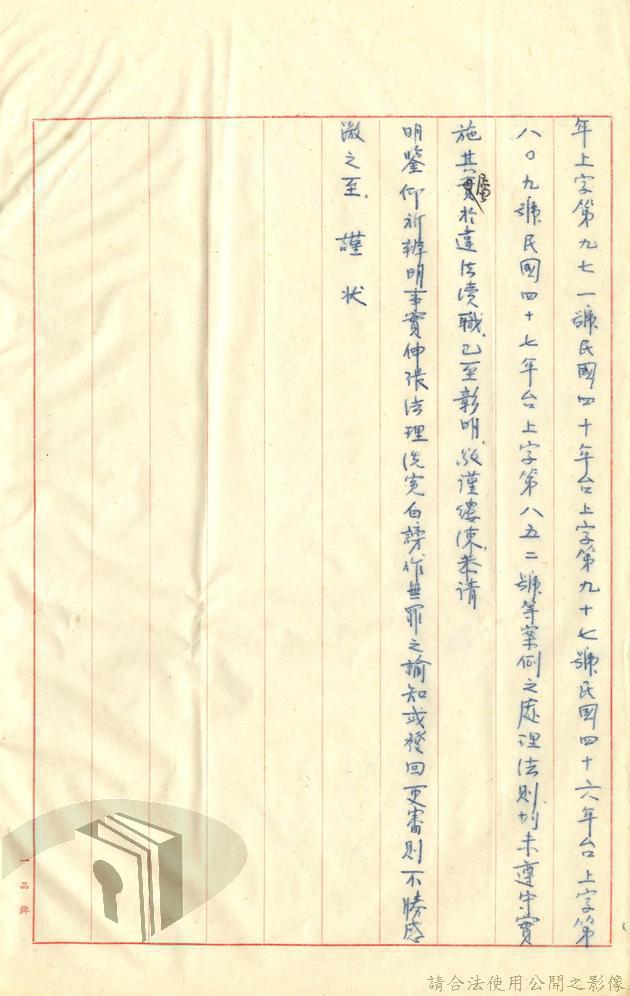 年上字第九七一號民國四十年台上字第九十七號民國四十六年台上字第
八〇九號民國四十七年台上字第八五二號等案例之處理法則均未遵守實
施其屬於違法瀆職已至彰明敬謹縷陳恭请
明鑒仰祈辨明事實伸張法理洗寃白謗作無罪之諭知或發回更審則不勝感
激之至. 謹狀
一品牌
請合法使用公開之影像